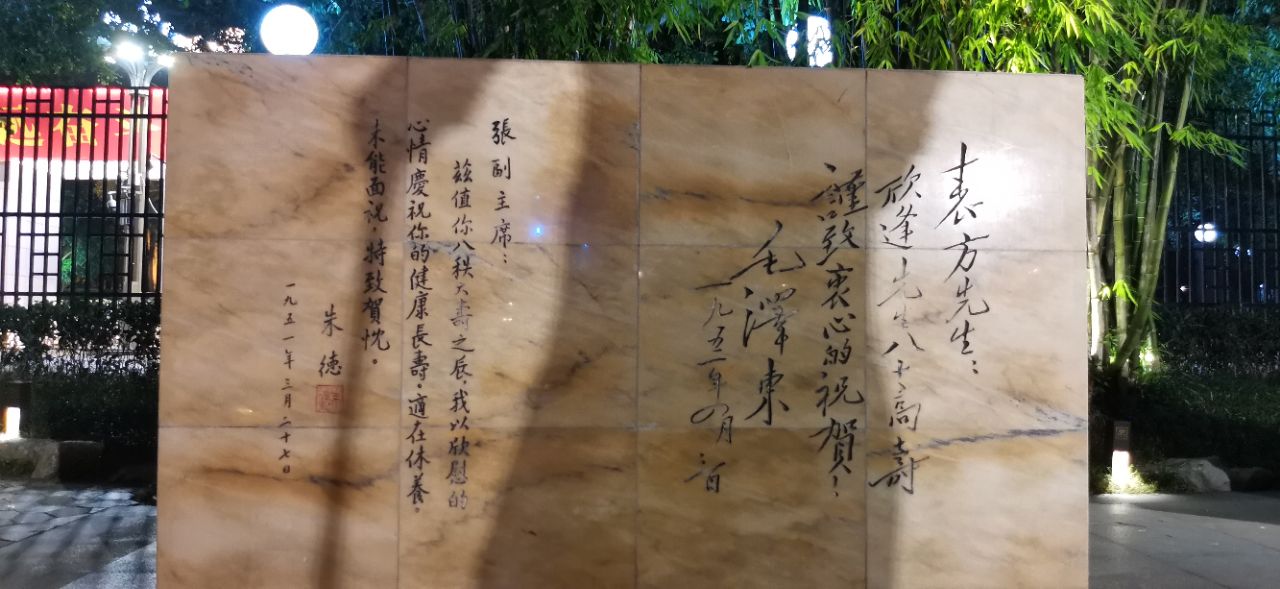 表方先生：
欣逢先生八十高壽
謹致衷心的祝賀！
毛澤東
一九五一年四月
張副主席：
茲值你八秩大壽之辰，我以欣慰的
心情慶祝你的健康長壽。適在休養。
未能面祝，特致賀忱。
朱德
一九五一年三月二十七日